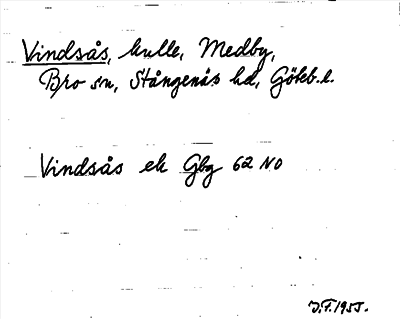 Vindsås, kulle, Medby,
Bro sn, Stångenäs hd, Göteb.l.
Vindsås ek Gbg 62 NO
J.F.1955.